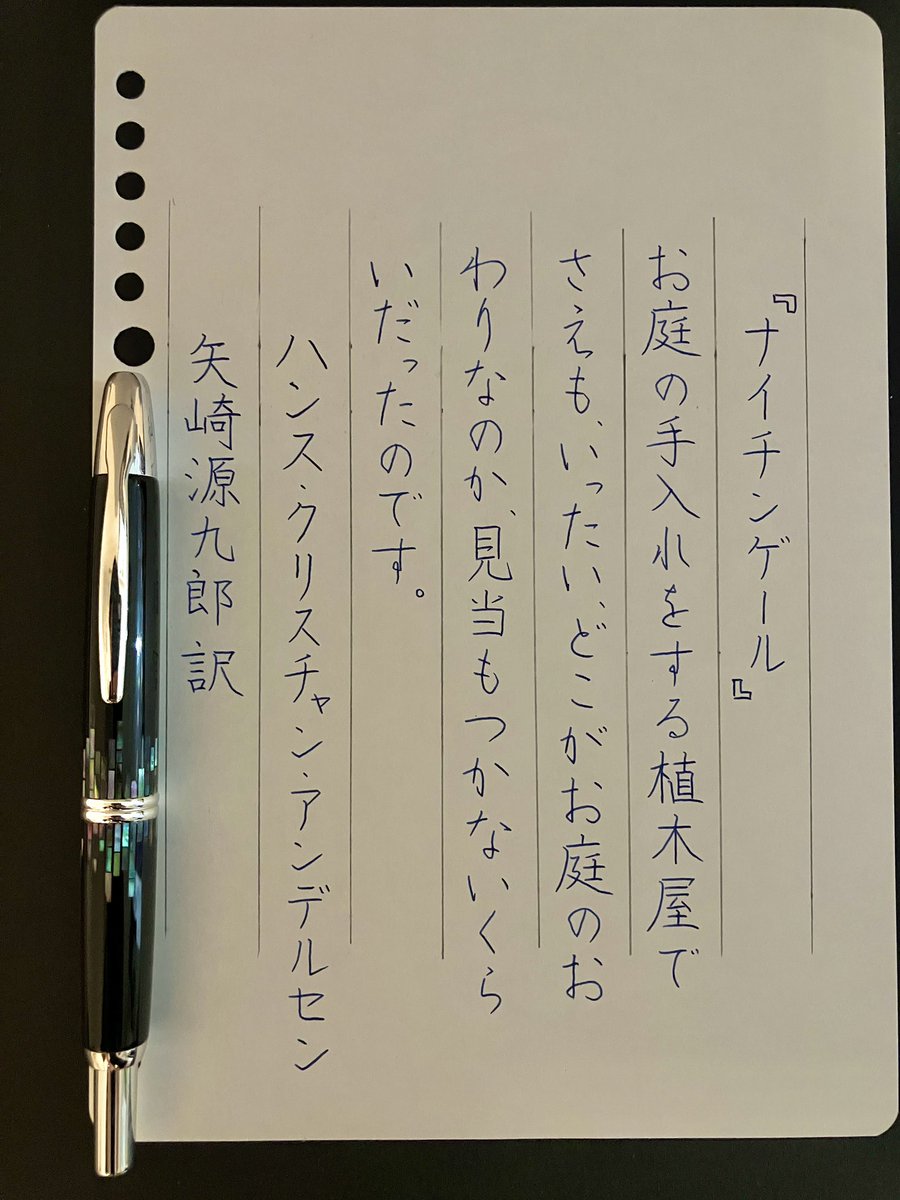 『ナイチンゲール』
お庭の手入れをする植木屋で
さえも、いったい、どこがお庭のお
わりなのか、見当もつかないくら
いだったのです。
ハンス・クリスチャン・アンデルセン
矢崎源九郎訳